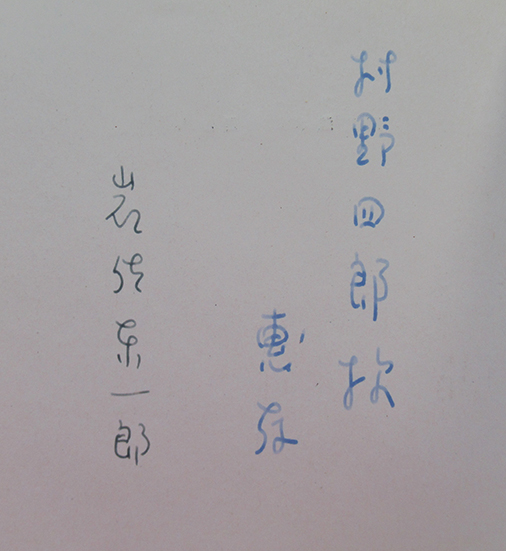 村野四郎様
惠存
岩佐東一郎